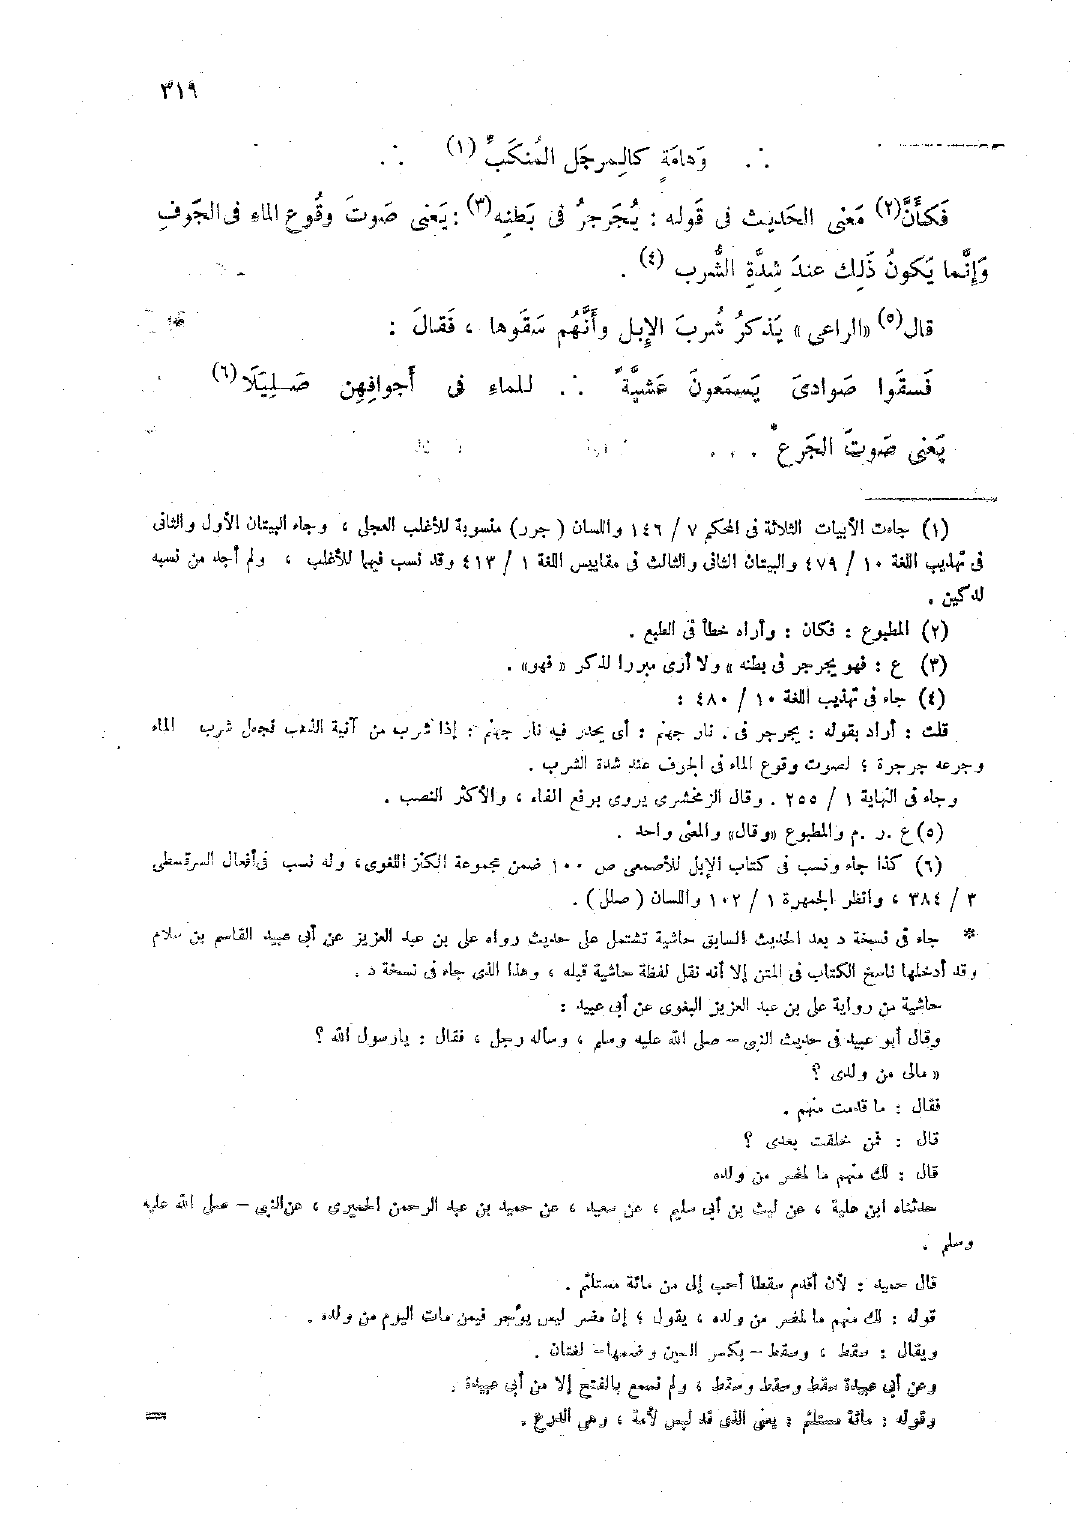 ٣١٩
∴ وَهامَةٍ كالمِرجَل المُنكَبِّ (١) ∴
فَكأَنَّ(٢) مَعنى الحَديث فى قَوله : يُجَرجرُ فى بَطنِه(٣) : يَعنى صَوتَ وقُوع الماءِ فى الجَوفِ
وَإنَّما يَكونُ ذَلِك عندَ شِدَّةِ الشُّرب (٤) .
قال(٥) «الراعى» يَذكرُ شُربَ الإبل وأَنَّهُم سَقَوها ، فَقالَ :
فَسقَوا صَوادىَ يَسمَعونَ عَشيَّةً ∴ للماءِ فى أَجوافِهِن صَلِيلَا(٦)
يَعنى صَوتَ الجَرع * . . .
(١) جاءت الأبيات الثلاثة فى المحكم ٧ / ١٤٦ واللسان ( جرر) منسوبة للأغلب العجلى ، وجاء البيتان الأول والثانى
فى تهذيب اللغة ١٠ / ٤٧٩ والبيتان الثانى والثالث فى مقاييس اللغة ١ / ٤١٣ وقد نسب فيهما للأغلب ، ولم أجد من نسبه
لدكين .
(٢) المطبوع : فكان : وأراه خطأ فى الطبع .
(٣) ع : فهو يجرجر فى بطنه » ولا أرى مبررا لذكر « فهو» .
(٤) جاء فى تهذيب اللغة ١٠ / ٤٨٠ :
قلت : أراد بقوله : يجرجر فى . نار جهنم : أى يحدر فيه نار جهنم : إذا شرب من آنية الذهب فجعل شرب الماء
وجرعه جرجرة ؛ لصوت وقوع الماء فى الجوف عند شدة الشرب .
وجاء فى النهاية ١ / ٢٥٥ . وقال الزمخشرى يروى برفع الفاء ، والأكثر النصب .
(٥) ع .ر .م والمطبوع «وقال» والمعنى واحد .
(٦) كذا جاء ونسب فى كتاب الإبل للأصمعى ص ١٠٠ ضمن مجموعة الكنز اللغوى، وله نسب فى أفعال السرقسطى
٣ / ٣٨٤ ، وانظر الجمهرة ١ / ١٠٢ واللسان ( صلل ) .
* جاء فى نسخة د بعد الحديث السابق حاشية تشتمل على حديث رواه على بن عبد العزيز عن أبى عبيد القاسم بن سلام
وقد أدخلها ناسخ الكتاب فى المتن إلا أنه نقل لفظة حاشية قبله ، وهذا الذى جاء فى نسخة د .
حاشية من رواية على بن عبد العزيز البغوى عن أبى عبيد :
وقال أبو عبيد فى حديث النبى – صلى الله عليه وسلم ، وسأله رجل ، فقال : يارسول الله ؟
« مالى من ولدى ؟
فقال : ما قدمت منهم .
قال : فمن خلفت بعدى ؟
قال : لك منهم ما لمضر من ولده
حدثناه ابن علية ، عن ليث بن أبى سليم ، عن سعيد ، عن حميد بن عبد الرحمن الحميرى ، عن النبى – صلى الله عليه
وسلم .
قال حميد : لأن أقدم سقطا أحب إلى من مائة مستلئم .
قوله : لك منهم ما لمضر من ولده ، يقول ؛ إن مضر ليس يؤجر فيمن مات اليوم من ولده .
ويقال : سقط ، وسقط – بكسر السين وضمها– لغتان .
وعن أبى عبيدة سقط وسقط وسقط ، ولم نسمع بالفتح إلا من أبى عبيدة .
وقوله : مائة مستلئم : يعنى الذى قد لبس لأمة ، وهى الدرع .
=